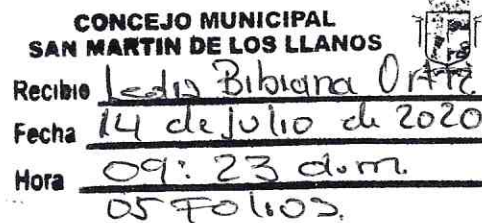 CONCEJO MUNICIPAL
SAN MARTIN DE LOS LLANOS
Recibio Ledis Bibiana Ortiz
Fecha 14 de julio de 2020
Hora 09:23 a.m.
05 Folios.